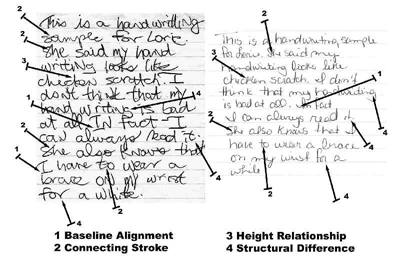 This is a handwriting
sample for Lori.
She said my hand
writing looks like
chicken scratch. I
don't think that my
hand writing is bad
at all. IN fact - I
can always read it.
She also knows that
I have to wear a
brace on my wrist
for a while.
This is a handwriting sample
for Lori. She said my
handwriting looks like
chicken scratch. I don't
think that my handwriting
is bad at all. In fact
I can always read it.
She also knows that I
have to wear a brace
on my wrist for a
while
2
2
3
2
1
2
1
4
4
2
4
2
3
1
4
4
2
2
4
1 Baseline Alignment
2 Connecting Stroke
3 Height Relationship
4 Structural Difference